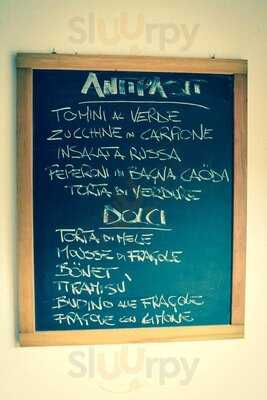 Sluurpy
ANTIPASTI
TOMINI AL VERDE
ZUCCHINE IN CARPIONE
INSALATA RUSSA
PEPERONI IN BAGNA CAÖDA
TORTA DI VERDURE
DOLCI
TORTA DI MELE
MOUSSE DI FRAGOLE
BÖNET
TIRAMISÙ
BUDINO ALLE FRAGOLE
FRAGOLE CON LIMONE
Sluurpy